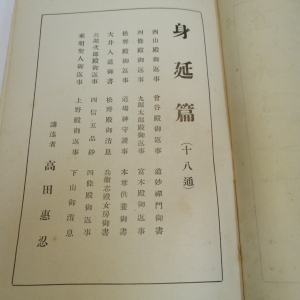 身延篇（十八通）
西山殿御返事　曾谷殿御返事　道妙禪門御書
四條殿御返事　九郎太郎殿御返事　富木殿御返事
松野殿御返事　道場神守護事　本尊供養御書
大井入道御書　松野殿御消息　兵衞志殿女房御書
兵部次郎殿御返事　四信五品鈔　四條殿御返事
來明聖人御返事　上野殿御返事　下山御消息
講述者　高田惠忍